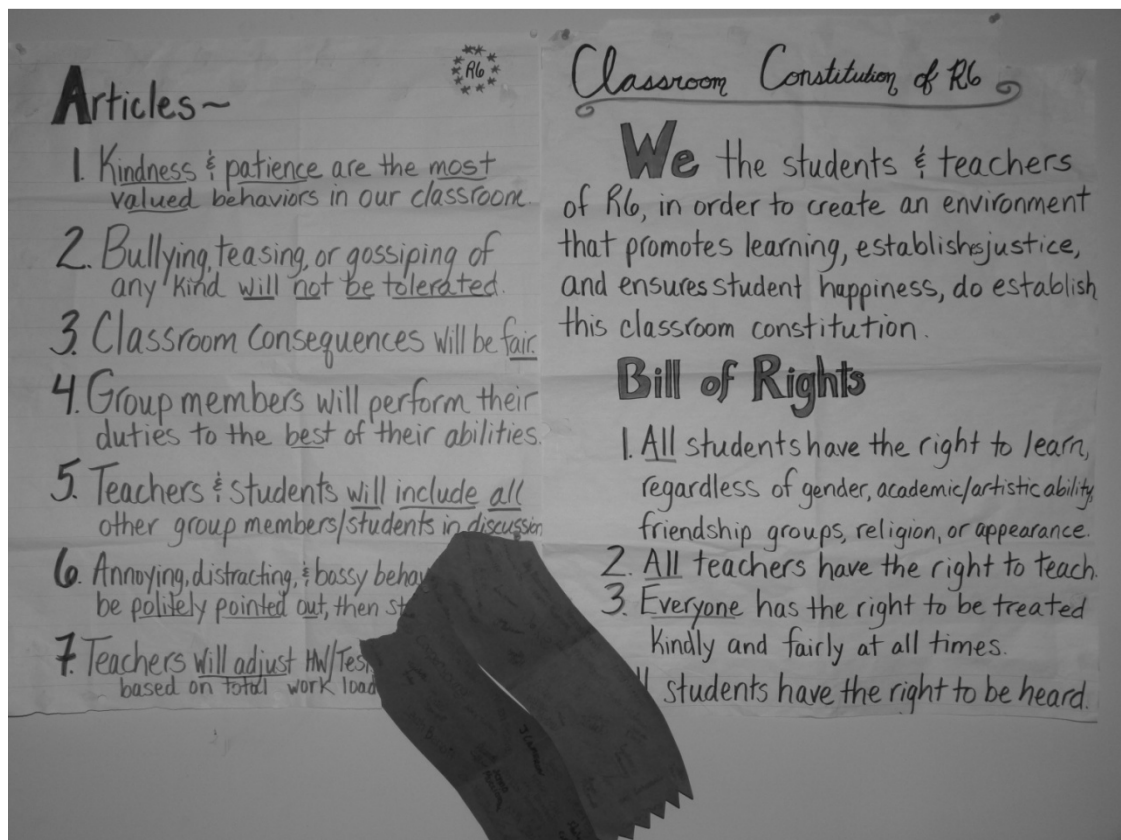 Articles~
R6
1. Kindness & patience are the most
valued behaviors in our classroom.
2. Bullying, teasing, or gossiping of
any kind will not be tolerated.
3. Classroom Consequences will be fair.
4. Group members will perform their
duties to the best of their abilities.
5. Teachers & students will include all
other group members/students in discussion
6. Annoying, distracting, & bossy
be politely pointed out, then
7. Teachers will adjust HW/
based on total work load
Classroom Constitution of R6
We the students & teachers
of R6, in order to create an environment
that promotes learning, establishes justice,
and ensures student happiness, do establish
this classroom constitution.
Bill of Rights
1. All students have the right to learn,
regardless of gender, academic/artistic ability,
friendship groups, religion, or appearance.
2. All teachers have the right to teach.
3. Everyone has the right to be treated
kindly and fairly at all times.
students have the right to be heard.